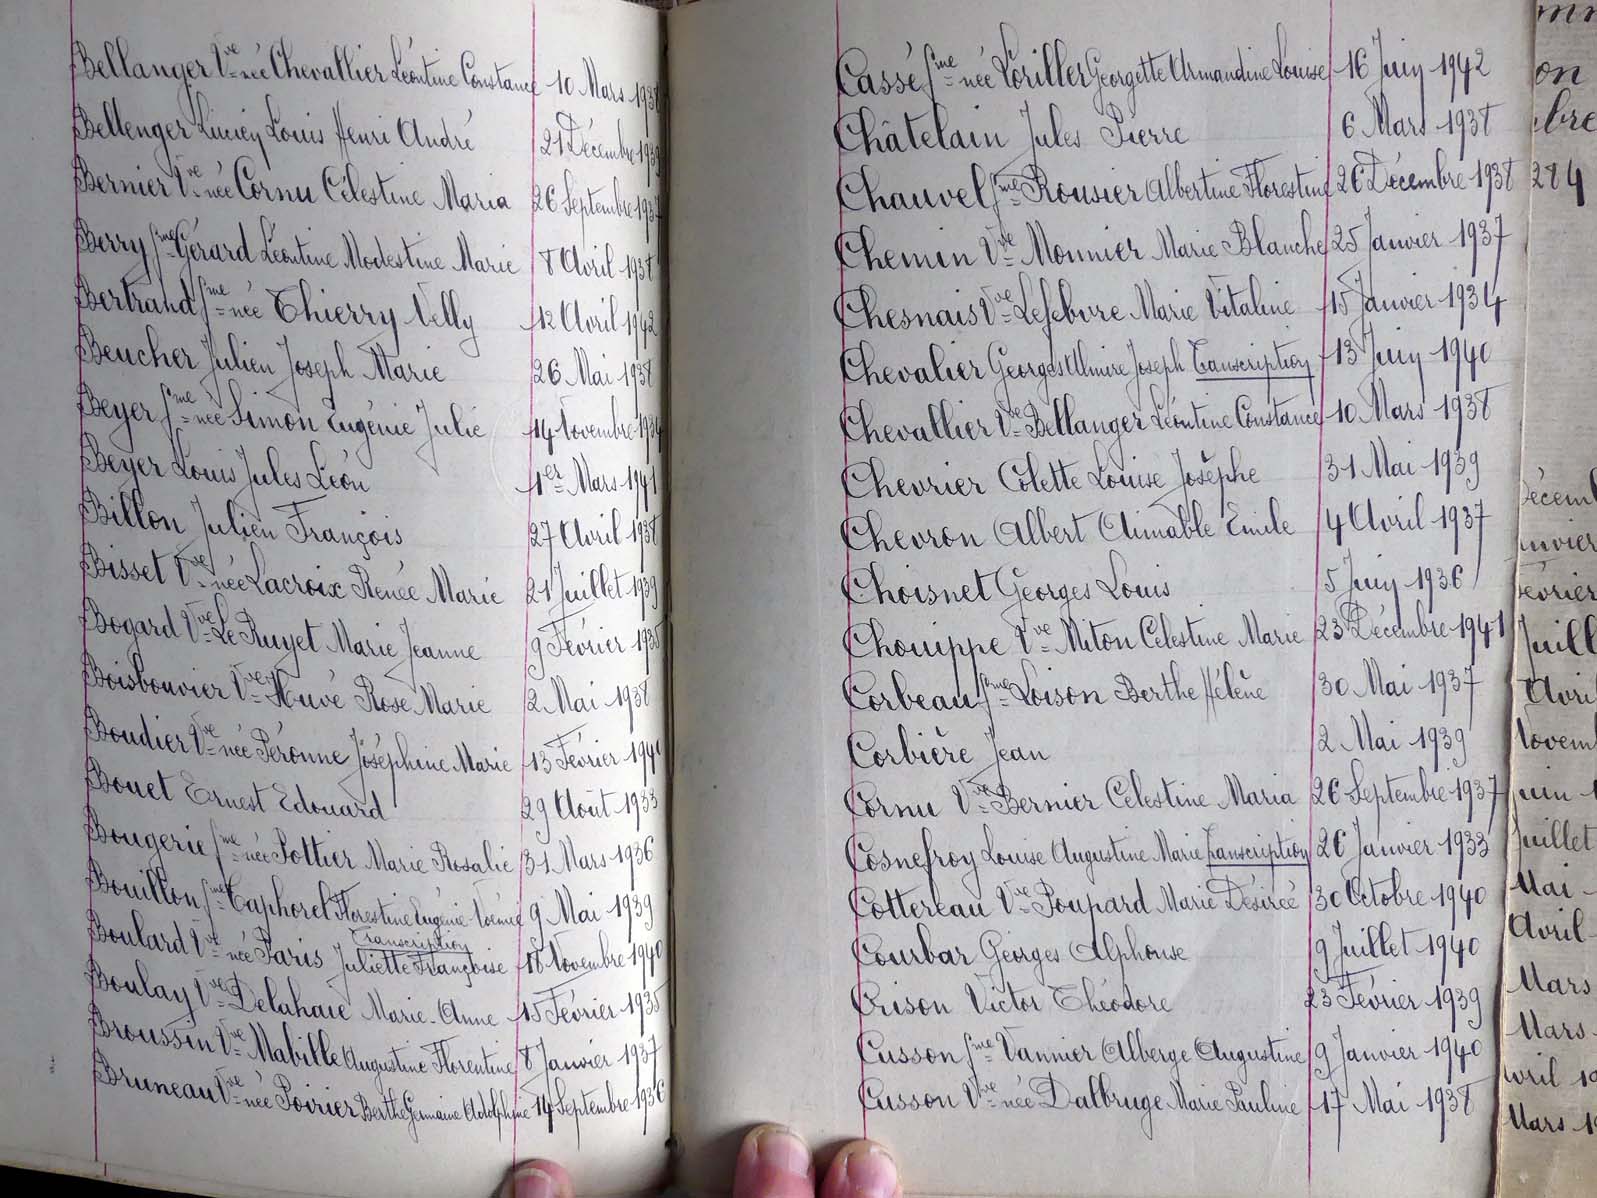 Bellanger Vve née Chevallier Léontine Constance 10 Mars 1938
Bellenger Lucien Louis Henri André 21 Décembre 1939
Bernier Vve née Cornu Célestine Maria 26 Septembre 1937
Berry fme Gérard Léontine Modestine Marie 8 Avril 1938
Bertrand fme née Thierry Nelly 12 Avril 1942
Beucher Julien Joseph Marie 26 Mai 1938
Beyer fme née Simon Eugénie Julie 14 Novembre 1934
Beyer Louis Jules Léon 1er Mars 1941
Billon Julien François 27 Avril 1938
Bisset Vve née Lacroix Renée Marie 21 Juillet 1939
Bogard Vve Le Ruyet Marie Jeanne 9 Février 1935
Boisbouvier Vve Huvé Rose Marie 2 Mai 1938
Boudier Vve née Péronne Joséphine Marie 13 Février 1941
Bouet Ernest Edouard 29 Août 1933
Bougerie fme née Pottier Marie Rosalie 31 Mars 1936
Bouillon fme Caphorel Florestine Eugénie Noémie 9 Mai 1939
Boulard Vve née Paris Juliette Françoise Transcription 18 Novembre 1940
Boulay Vve Delahaie Marie-Anne 15 Février 1935
Broussin Vve Mabille Augustine Florentine 8 Janvier 1937
Bruneau Vve née Poirier Berthe Germaine Adolphine 14 Septembre 1936
Cassé fme née Loriller Georgette Armandine Louise 16 Juin 1942
Châtelain Jules Pierre 6 Mars 1938
Chauvel fme Rousier Albertine Florestine 26 Décembre 1938
Chemin Vve Monnier Marie Blanche 25 Janvier 1937
Chesnais Vve Lefebvre Marie Vitaline 15 Janvier 1934
Chevalier Georges Almire Joseph Transcription 13 Juin 1940
Chevallier Vve Bellanger Léontine Constance 10 Mars 1938
Chevrier Colette Louise Josèphe 31 Mai 1939
Chevron Albert Aimable Emile 4 Avril 1937
Choisnet Georges Louis 5 Juin 1936
Chouippe Vve Miton Célestine Marie 23 Décembre 1941
Corbeau fme Loison Berthe Hélène 30 Mai 1937
Corbière Jean 2 Mai 1939
Cornu Vve Bernier Célestine Maria 26 Septembre 1937
Cosnefroy Louise Augustine Marie Transcription 26 Janvier 1933
Cottereau Vve Poupard Marie Désirée 30 Octobre 1940
Courbar Georges Alphonse 9 Juillet 1940
Crison Victor Théodore 23 Février 1939
Cusson fme Vannier Alberge Augustine 9 Janvier 1940
Cusson Vve née Dalbruge Marie Pauline 17 Mai 1938